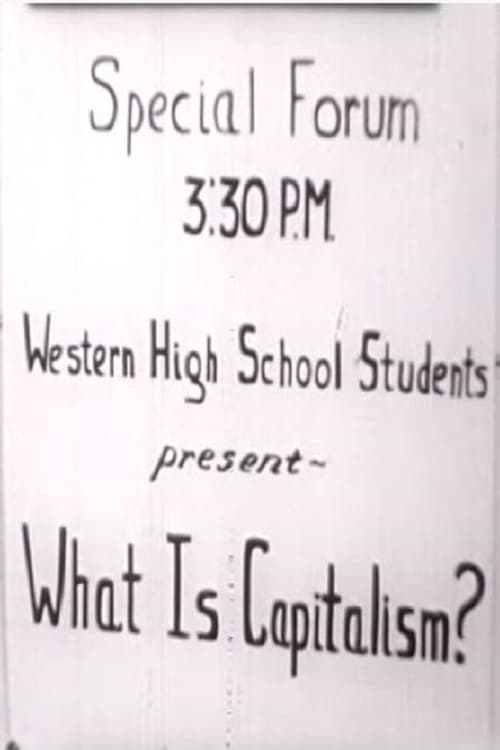 Special Forum
3:30 P.M.
Western High School Students
present~
What Is Capitalism?